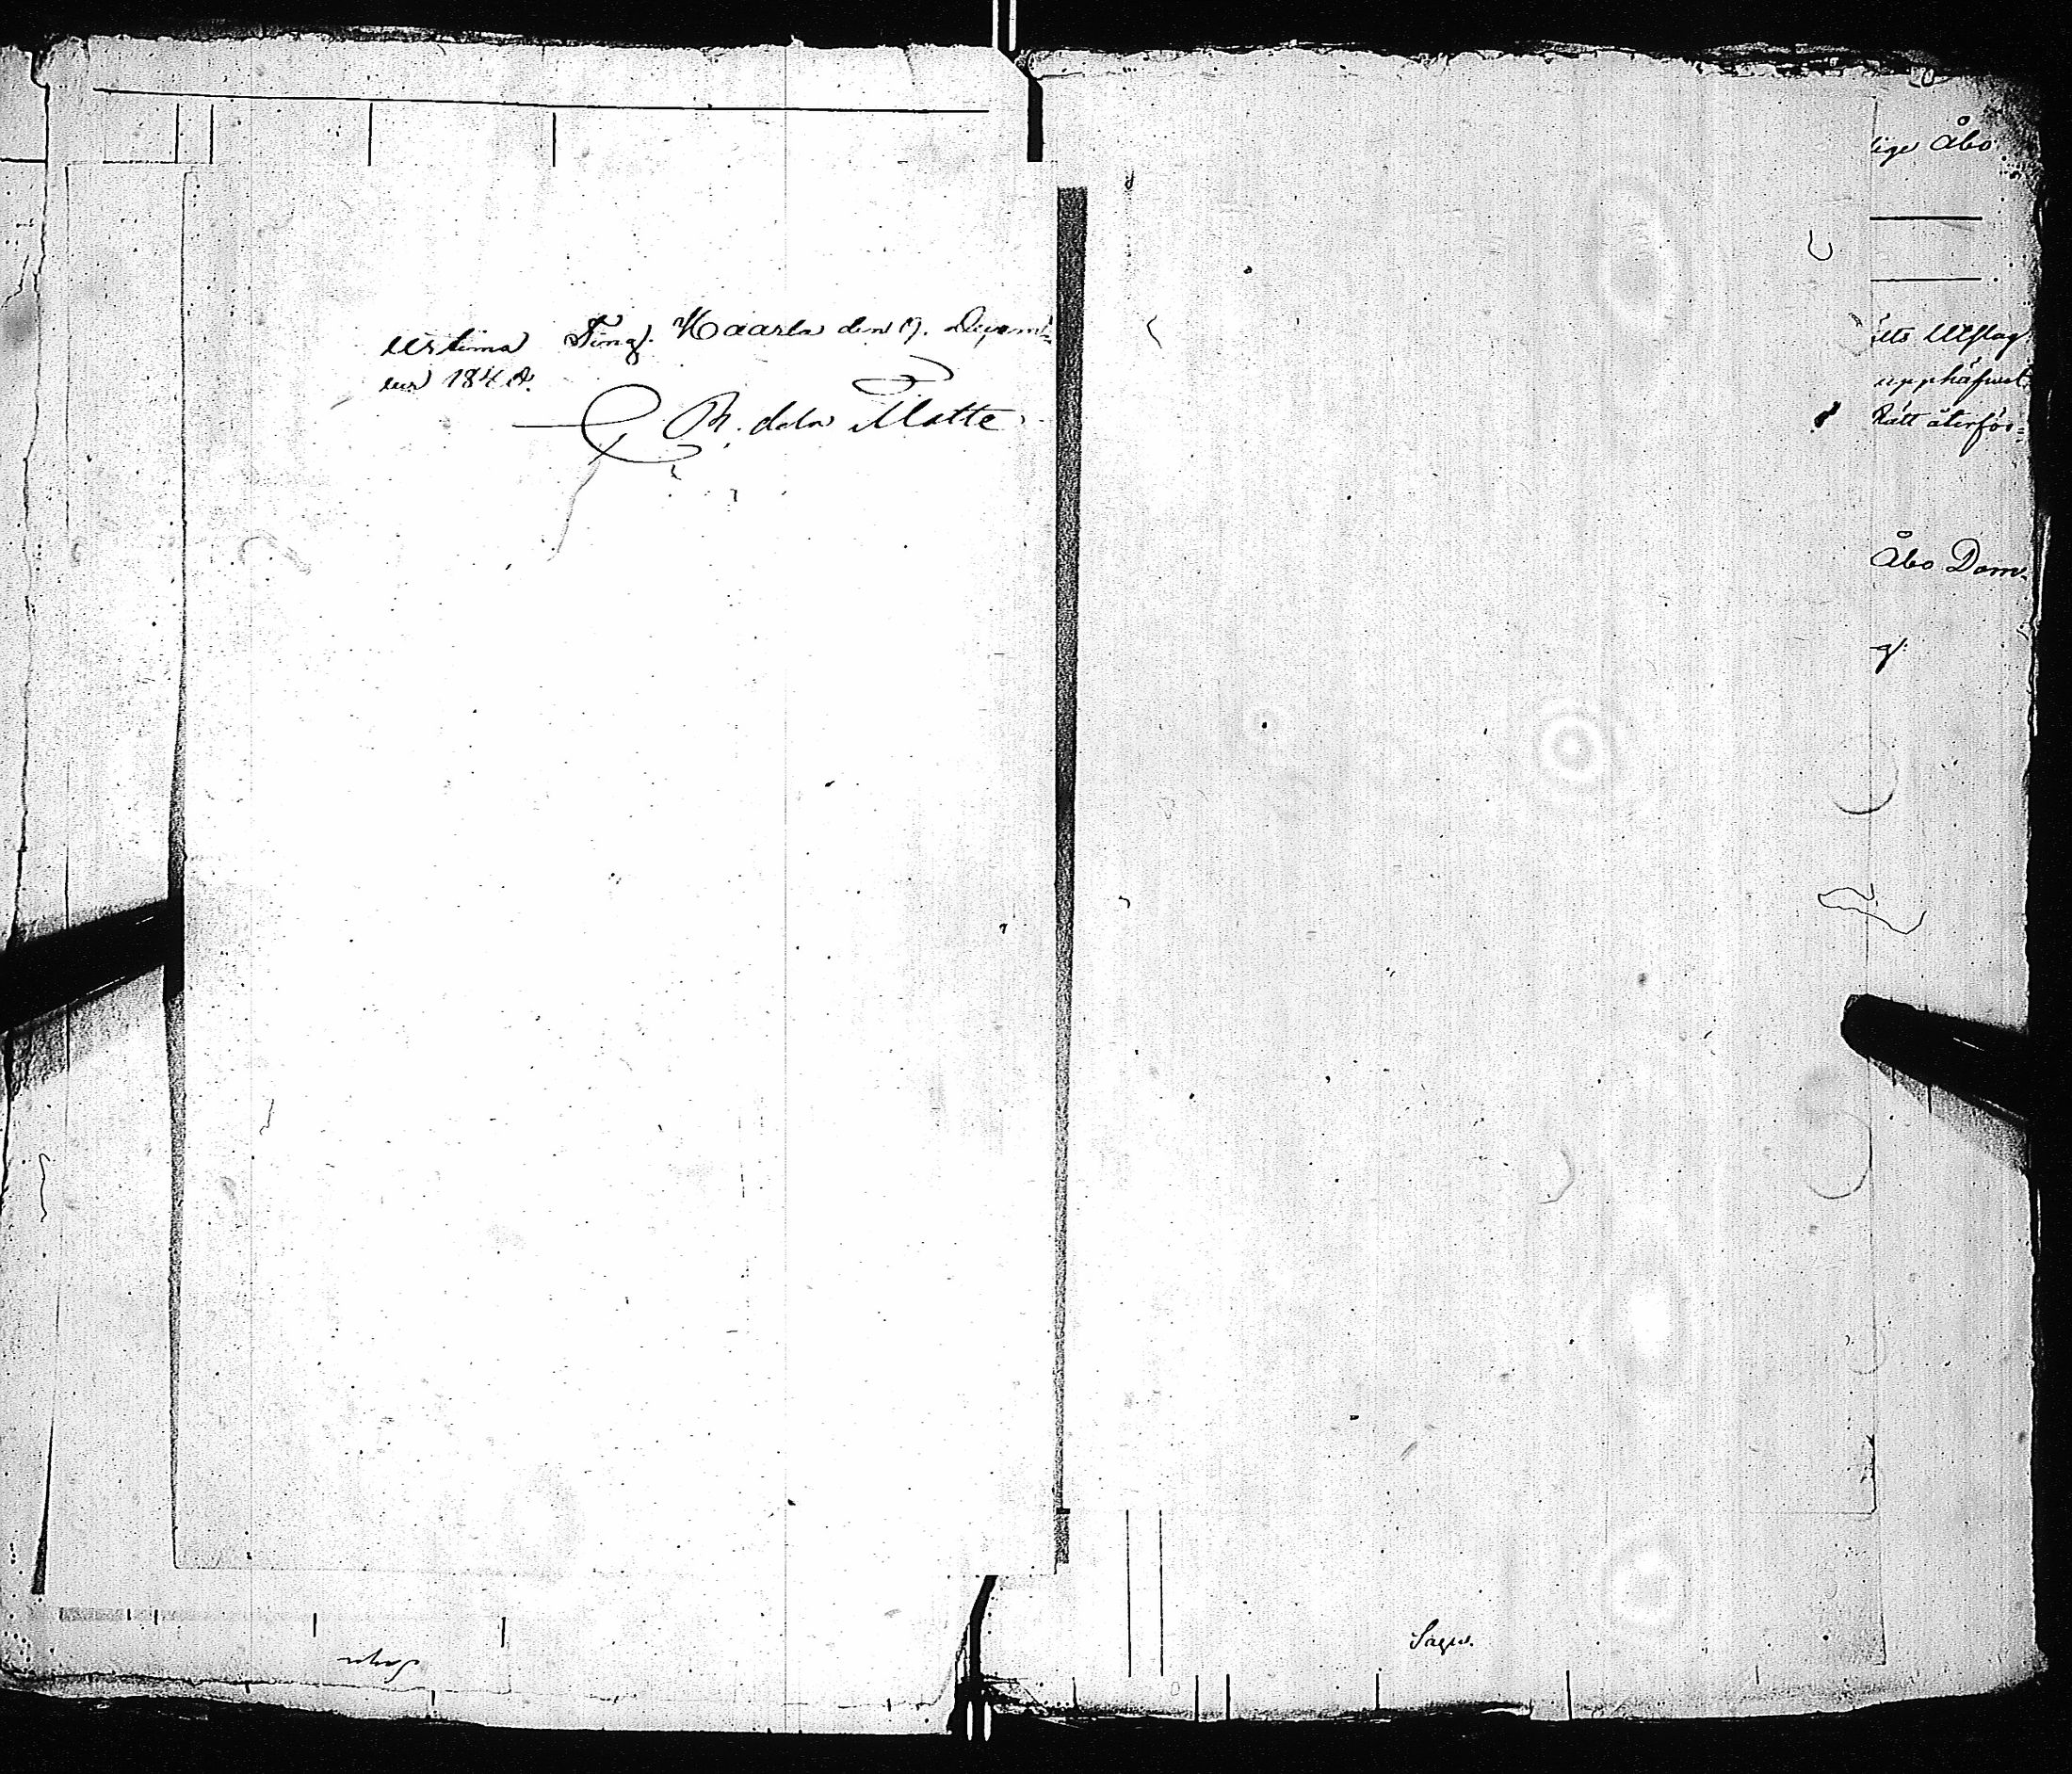 Urtima Ting. Kaarla den 19. Decem=
ber 184
R. de la Motte
lige Åbo
tts Utslag
upphäfwet
Rätt återför=
Åbo Dom=
g:
Sagu.